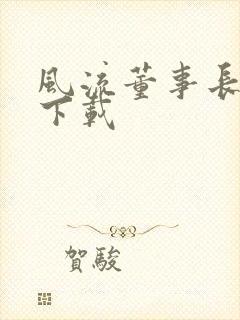 風流董事長
下載
賀駿